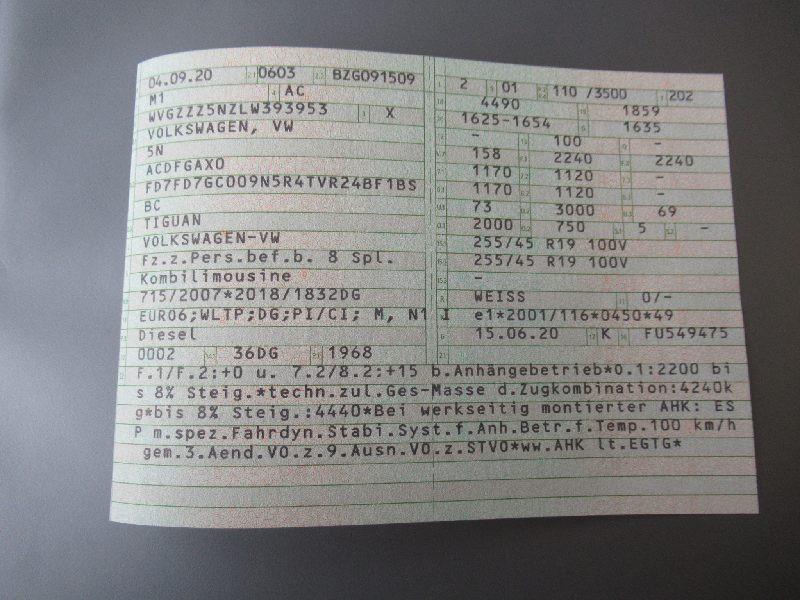 04.09.20 0603 BZG091509
M1 AC
WVGZZZ5NZLW393953 X
VOLKSWAGEN, VW
5N
ACDFGAX0
FD7FD7GC009N5R4TVR24BF1BS
BC
TIGUAN
VOLKSWAGEN-VW
Fz.z.Pers.bef.b. 8 Spl.
Kombilimousine
715/2007*2018/1832DG
EURO6;WLTP;DG;PI/CI; M, N1 I
Diesel
0002 36DG 1968
2 01 110 /3500 202
4490 1859
1625-1654 1635
- 100 -
158 2240 2240
1170 1120 -
1170 1120 -
73 3000 69
2000 750 5 -
255/45 R19 100V
255/45 R19 100V
-
WEISS 0/-
e1*2001/116*0450*49
15.06.20 K FU549475
F.1/F.2:+0 u. 7.2/8.2:+15 b.Anhängebetrieb*0.1:2200 bi
s 8% Steig.*techn.zul.Ges-Masse d.Zugkombination:4240k
g*bis 8% Steig.:4440*Bei werkseitig montierter AHK: ES
P m.spez.Fahrdyn.Stabi.Syst.f.Anh.Betr.f.Temp.100 km/h
gem.3.Aend.VO.z.9.Ausn.VO.z.STVO*ww.AHK lt.EGTG*